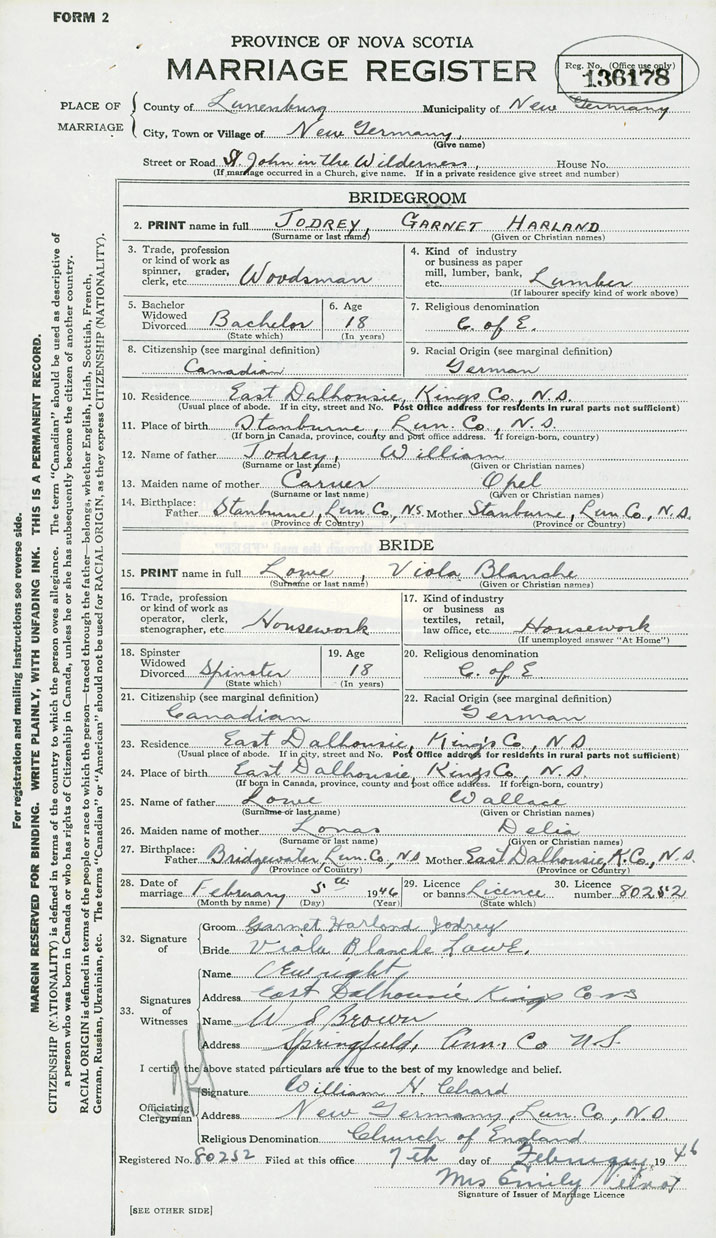 FORM 2
PROVINCE OF NOVA SCOTIA
MARRIAGE REGISTER
Reg. No. (Office use only)
136178
PLACE OF MARRIAGE
County of Lunenburg Municipality of New Germany
City, Town or Village of New Germany,
(Give name)
Street or Road St. John in the Wilderness, House No.
(If marriage occurred in a Church, give name. If in a private residence give street and number)
BRIDEGROOM
2. PRINT name in full JODREY, GARNET HARLAND
(Surname or last name) (Given or Christian names)
3. Trade, profession or kind of work as spinner, grader, clerk, etc. Woodsman
4. Kind of industry or business as paper mill, lumber, bank, etc. Lumber
(If labourer specify kind of work above)
5. Bachelor Widowed Divorced Bachelor
(State which)
6. Age 18
(In years)
7. Religious denomination
C. of E.
8. Citizenship (see marginal definition)
Canadian
9. Racial Origin (see marginal definition)
German
10. Residence East Dalhousie, Kings Co., N.S.
(Usual place of abode. If in city, street and No. Post Office address for residents in rural parts not sufficient)
11. Place of birth Stanburne, Lun. Co., N.S.
(If born in Canada, province, county and post office address. If foreign-born, country)
12. Name of father Jodrey, William
(Surname or last name) (Given or Christian names)
13. Maiden name of mother Carver Opel
(Surname or last name) (Given or Christian names)
14. Birthplace: Father Stanburne, Lun. Co., N.S. Mother Stanburne, Lun. Co., N.S.
(Province or Country) (Province or Country)
BRIDE
15. PRINT name in full Lowe, Viola Blanche
(Surname or last name) (Given or Christian names)
16. Trade, profession or kind of work as operator, clerk, stenographer, etc. Housework
17. Kind of industry or business as textiles, retail, law office, etc. Housework
(If unemployed answer "At Home")
18. Spinster Widowed Divorced Spinster
(State which)
19. Age 18
(In years)
20. Religious denomination
C. of E
21. Citizenship (see marginal definition)
Canadian
22. Racial Origin (see marginal definition)
German
23. Residence East Dalhousie, King's Co., N.S.
(Usual place of abode. If in city, street and No. Post Office address for residents in rural parts not sufficient)
24. Place of birth East Dalhousie, Kings Co., N.S.
(If born in Canada, province, county and post office address. If foreign-born, country)
25. Name of father Lowe Wallace
(Surname or last name) (Given or Christian names)
26. Maiden name of mother Lonas Delia
(Surname or last name) (Given or Christian names)
27. Birthplace: Father Bridgewater, Lun. Co., N.S. Mother East Dalhousie, K. Co., N.S.
(Province or Country) (Province or Country)
28. Date of marriage February 5th 1946
(Month by name) (Day) (Year)
29. Licence or banns Licence
(State which)
30. Licence number 80252
32. Signature of
Groom Garnet Harland Jodrey
Bride Viola Blanche Lowe.
33. Signatures of Witnesses
Name
Address East Dalhousie Kings Co NS
Name W S Brown
Address Springfield, Ann. Co N.S.
I certify the above stated particulars are true to the best of my knowledge and belief.
Officiating Clergyman
Signature William H. Chard
Address New Germany, Lun. Co., N.S.
Religious Denomination Church of England
Registered No. 80252 Filed at this office 7th day of February 1946
Mrs Emily
Signature of Issuer of Marriage Licence
[SEE OTHER SIDE]
For registration and mailing instructions see reverse side.
MARGIN RESERVED FOR BINDING. WRITE PLAINLY, WITH UNFADING INK. THIS IS A PERMANENT RECORD.
CITIZENSHIP (NATIONALITY) is defined in terms of the country to which the person owes allegiance. The term "Canadian" should be used as descriptive of
a person who was born in Canada or who has rights of Citizenship in Canada, unless he or she has subsequently become the citizen of another country.
RACIAL ORIGIN is defined in terms of the people or race to which the person—traced through the father—belongs, whether English, Irish, Scottish, French,
German, Russian, Ukrainian, etc. The terms "Canadian" or "American" should not be used for RACIAL ORIGIN, as they express CITIZENSHIP (NATIONALITY).